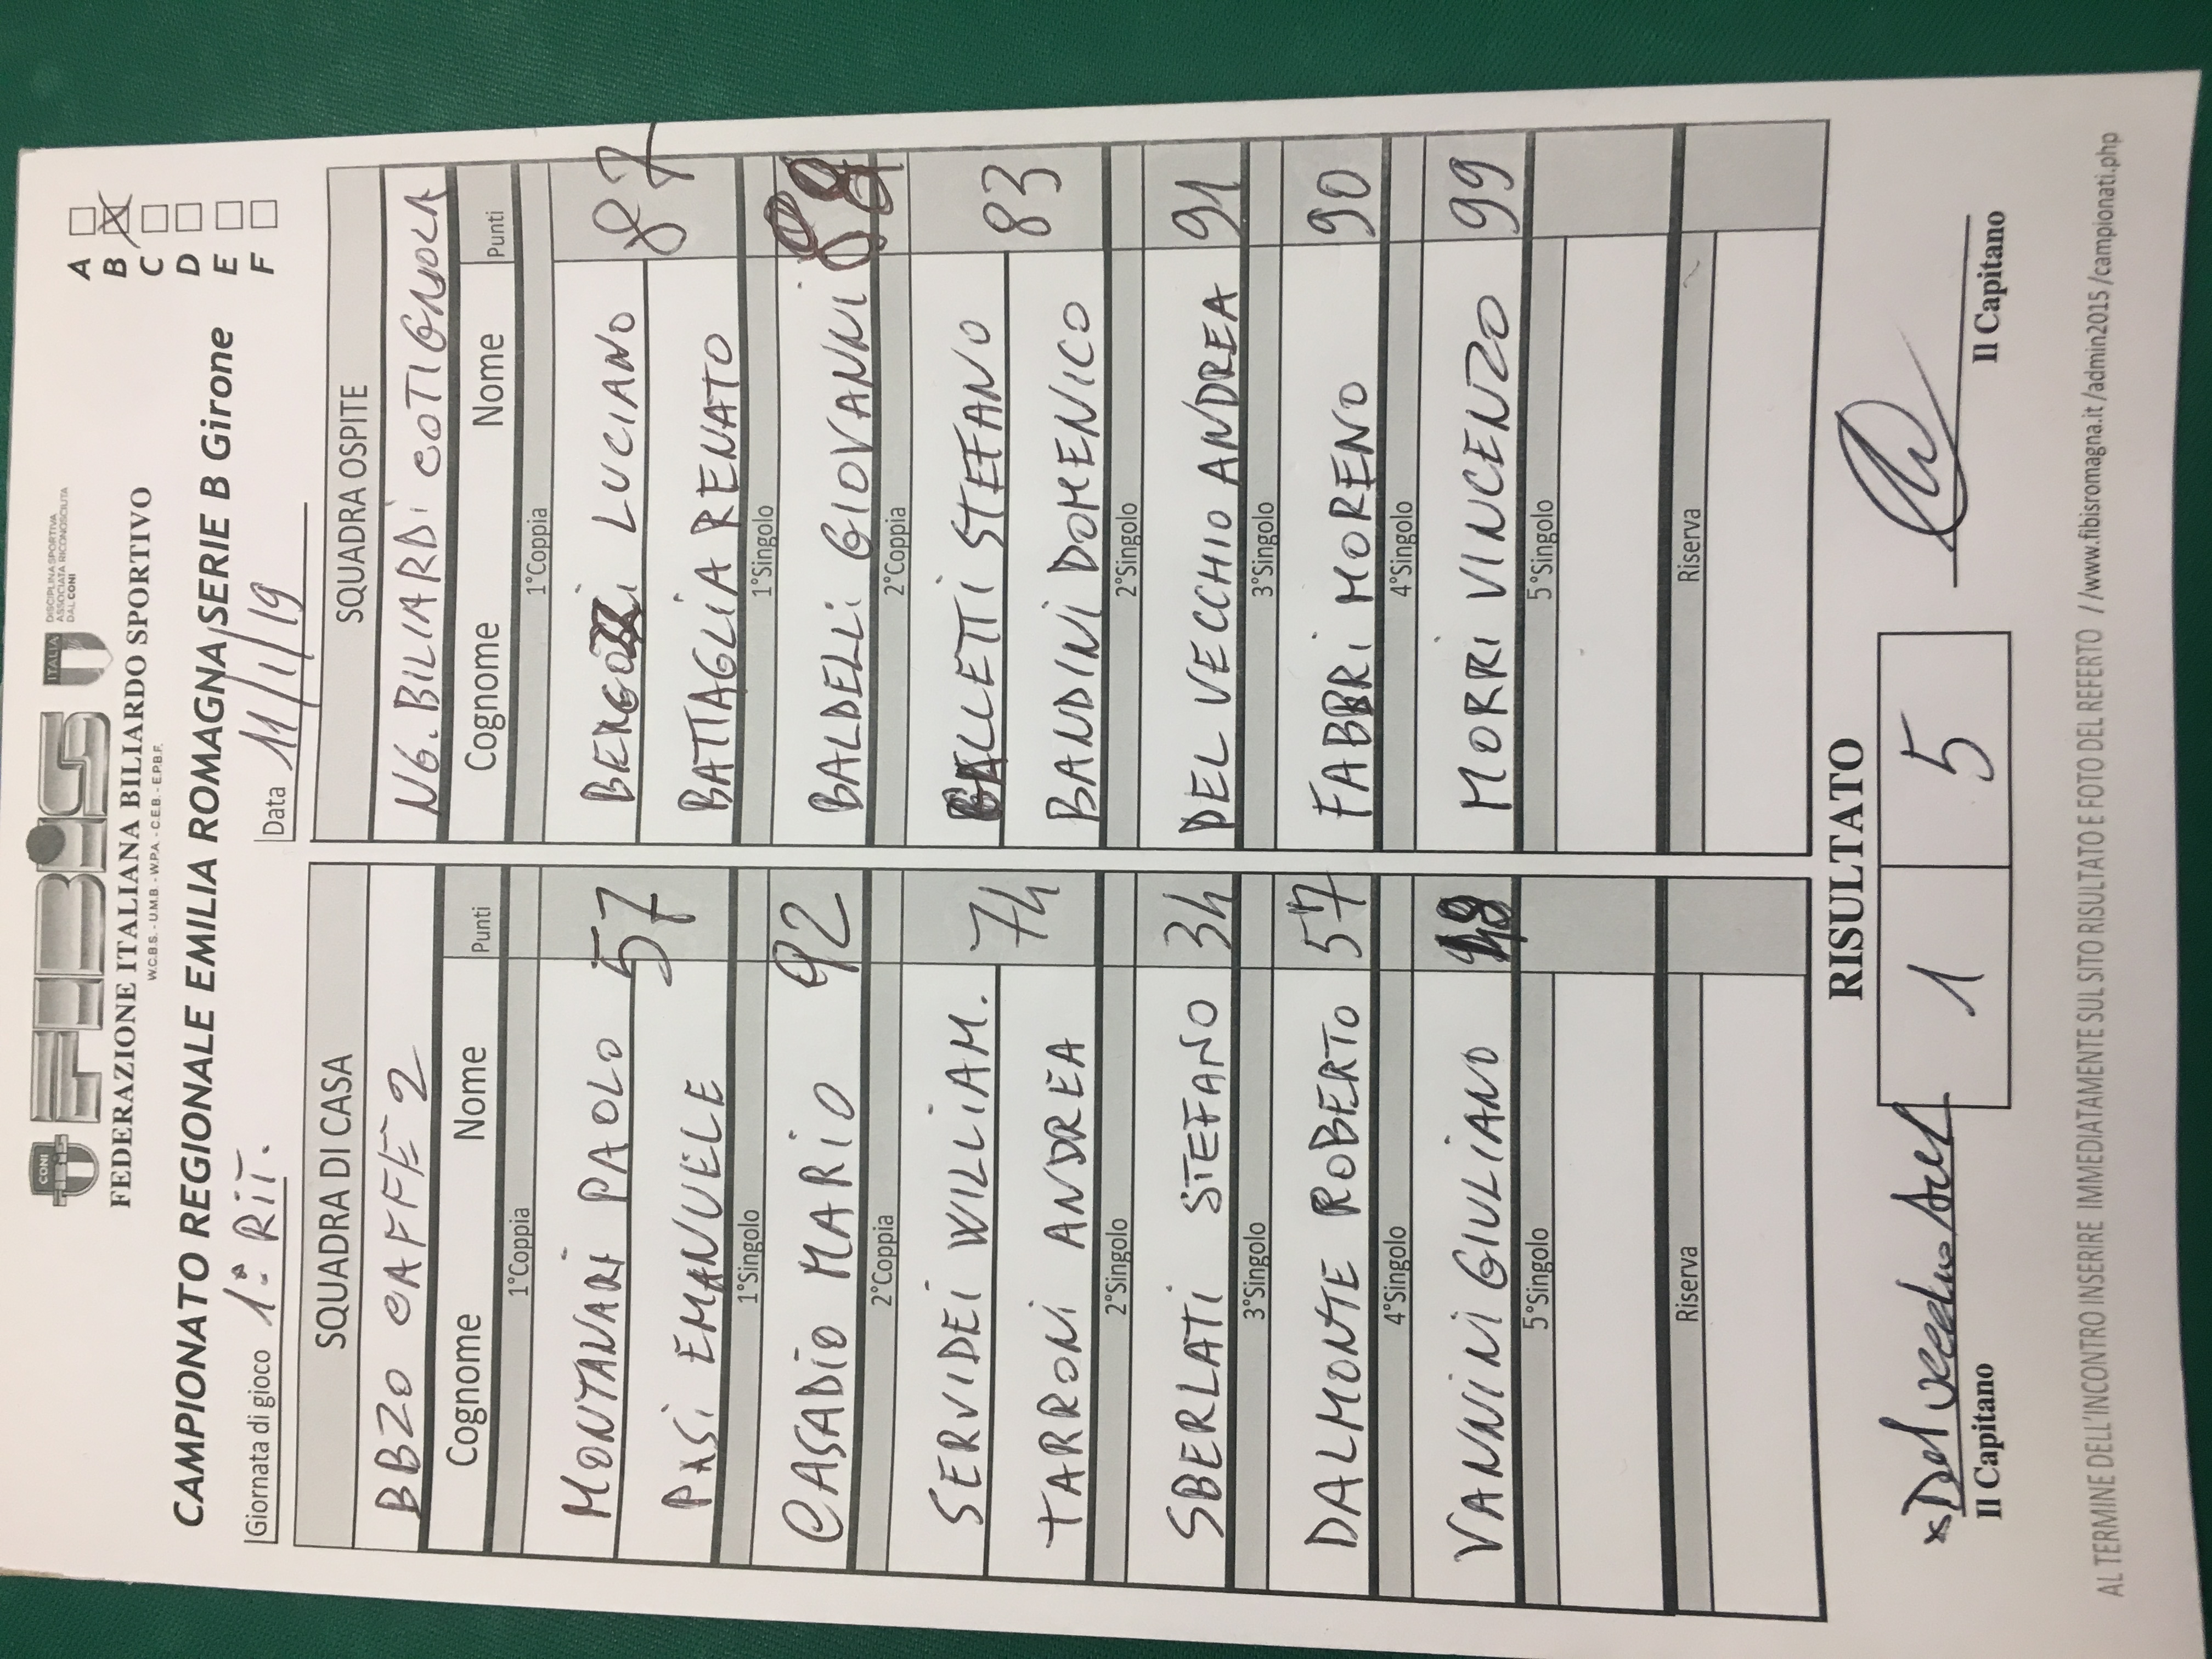 CONI
FIBiS
ITALIA
DISCIPLINA SPORTIVA
ASSOCIATA RICONOSCIUTA
DAL CONI
FEDERAZIONE ITALIANA BILIARDO SPORTIVO
W.C.B.S. - U.M.B. - W.P.A. - C.E.B. - E.P.B.F.
CAMPIONATO REGIONALE EMILIA ROMAGNA SERIE B Girone
A
B
C
D
E
F
Giornata di gioco 1° RiT. Data 11/1/19
SQUADRA DI CASA
BBZO CAFFE 2
Cognome Nome Punti
1°Coppia
MONTANARi PAOLO 57
PASi EMANUELE
1°Singolo
CASADIO MARiO 92
2°Coppia
SERVIDEI WILLIAM. 74
TARRONi ANDREA
2°Singolo
SBERLATi STEFANO 34
3°Singolo
DALMONTE ROBERTO 57
4°Singolo
VANNiNi GIULIANO
5°Singolo
Riserva
SQUADRA OSPITE
NG. BILIARDi COTIGNOLA
Cognome Nome Punti
1°Coppia
LUCIANO 87
BATTAGLiA RENATO
1°Singolo
BALDELLi GIOVANNi
2°Coppia
BALLETTi STEFANO 83
BANDINi DOMENICO
2°Singolo
DEL VECCHIO ANDREA 91
3°Singolo
FABBRi MORENO 90
4°Singolo
MORRi VINCENZO 99
5°Singolo
Riserva
RISULTATO
1 5
Il Capitano
Il Capitano
AL TERMINE DELL'INCONTRO INSERIRE IMMEDIATAMENTE SUL SITO RISULTATO E FOTO DEL REFERTO //www.fibisromagna.it/admin2015/campionati.php